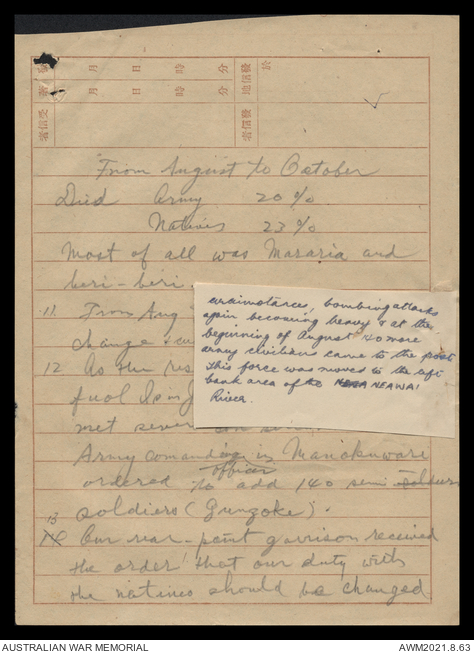 月 日 時 分
月 日 時 分
者信受
地信發
者信發
於
From August to October
Died Army 20%
Natives 23%
Most of all was Mararia and
beri-beri.
11 From Aug
change
12 As the res
fuol
met sever
Army comanding in Manokuwari
officer
ordered to add 140 semi
soldiers (Gunzoke).
13 Our rear-point garrison received
the order that our duty with
the natives should be changed
circumstances, bombing attacks
again becoming heavy & at the
beginning of August 140 more
army civilians came to the post
This force was moved to the left
bank area of the NEAWAI
River.
AUSTRALIAN WAR MEMORIAL
AWM2021.8.63